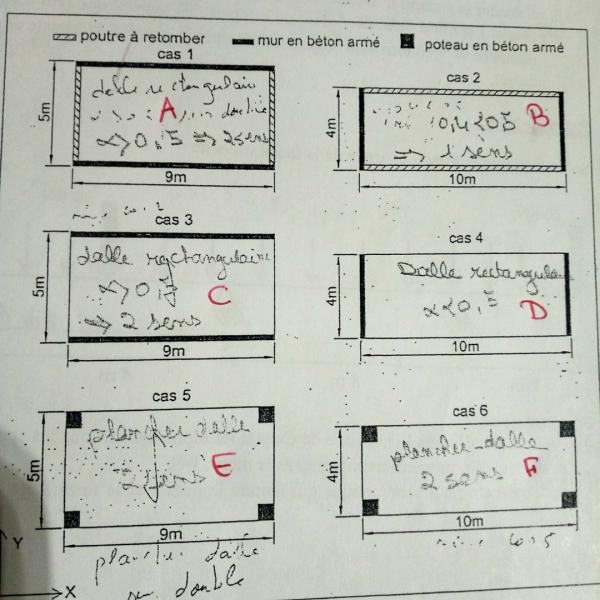 poutre à retomber mur en béton armé poteau en béton armé
cas 1
dalle rectangulaire
A double
α>0,5 => 2 sens
5m
9m
cas 2
0,4<0,5 B
=> 1 sens
4m
10m
cas 3
dalle rectangulaire
α>0,5 C
=> 2 sens
5m
9m
cas 4
Dalle rectangulaire
α<0,5 D
4m
10m
cas 5
plancher dalle
2 sens E
5m
9m
plancher dalle
double
cas 6
plancher-dalle
2 sens F
4m
10m
Y
X